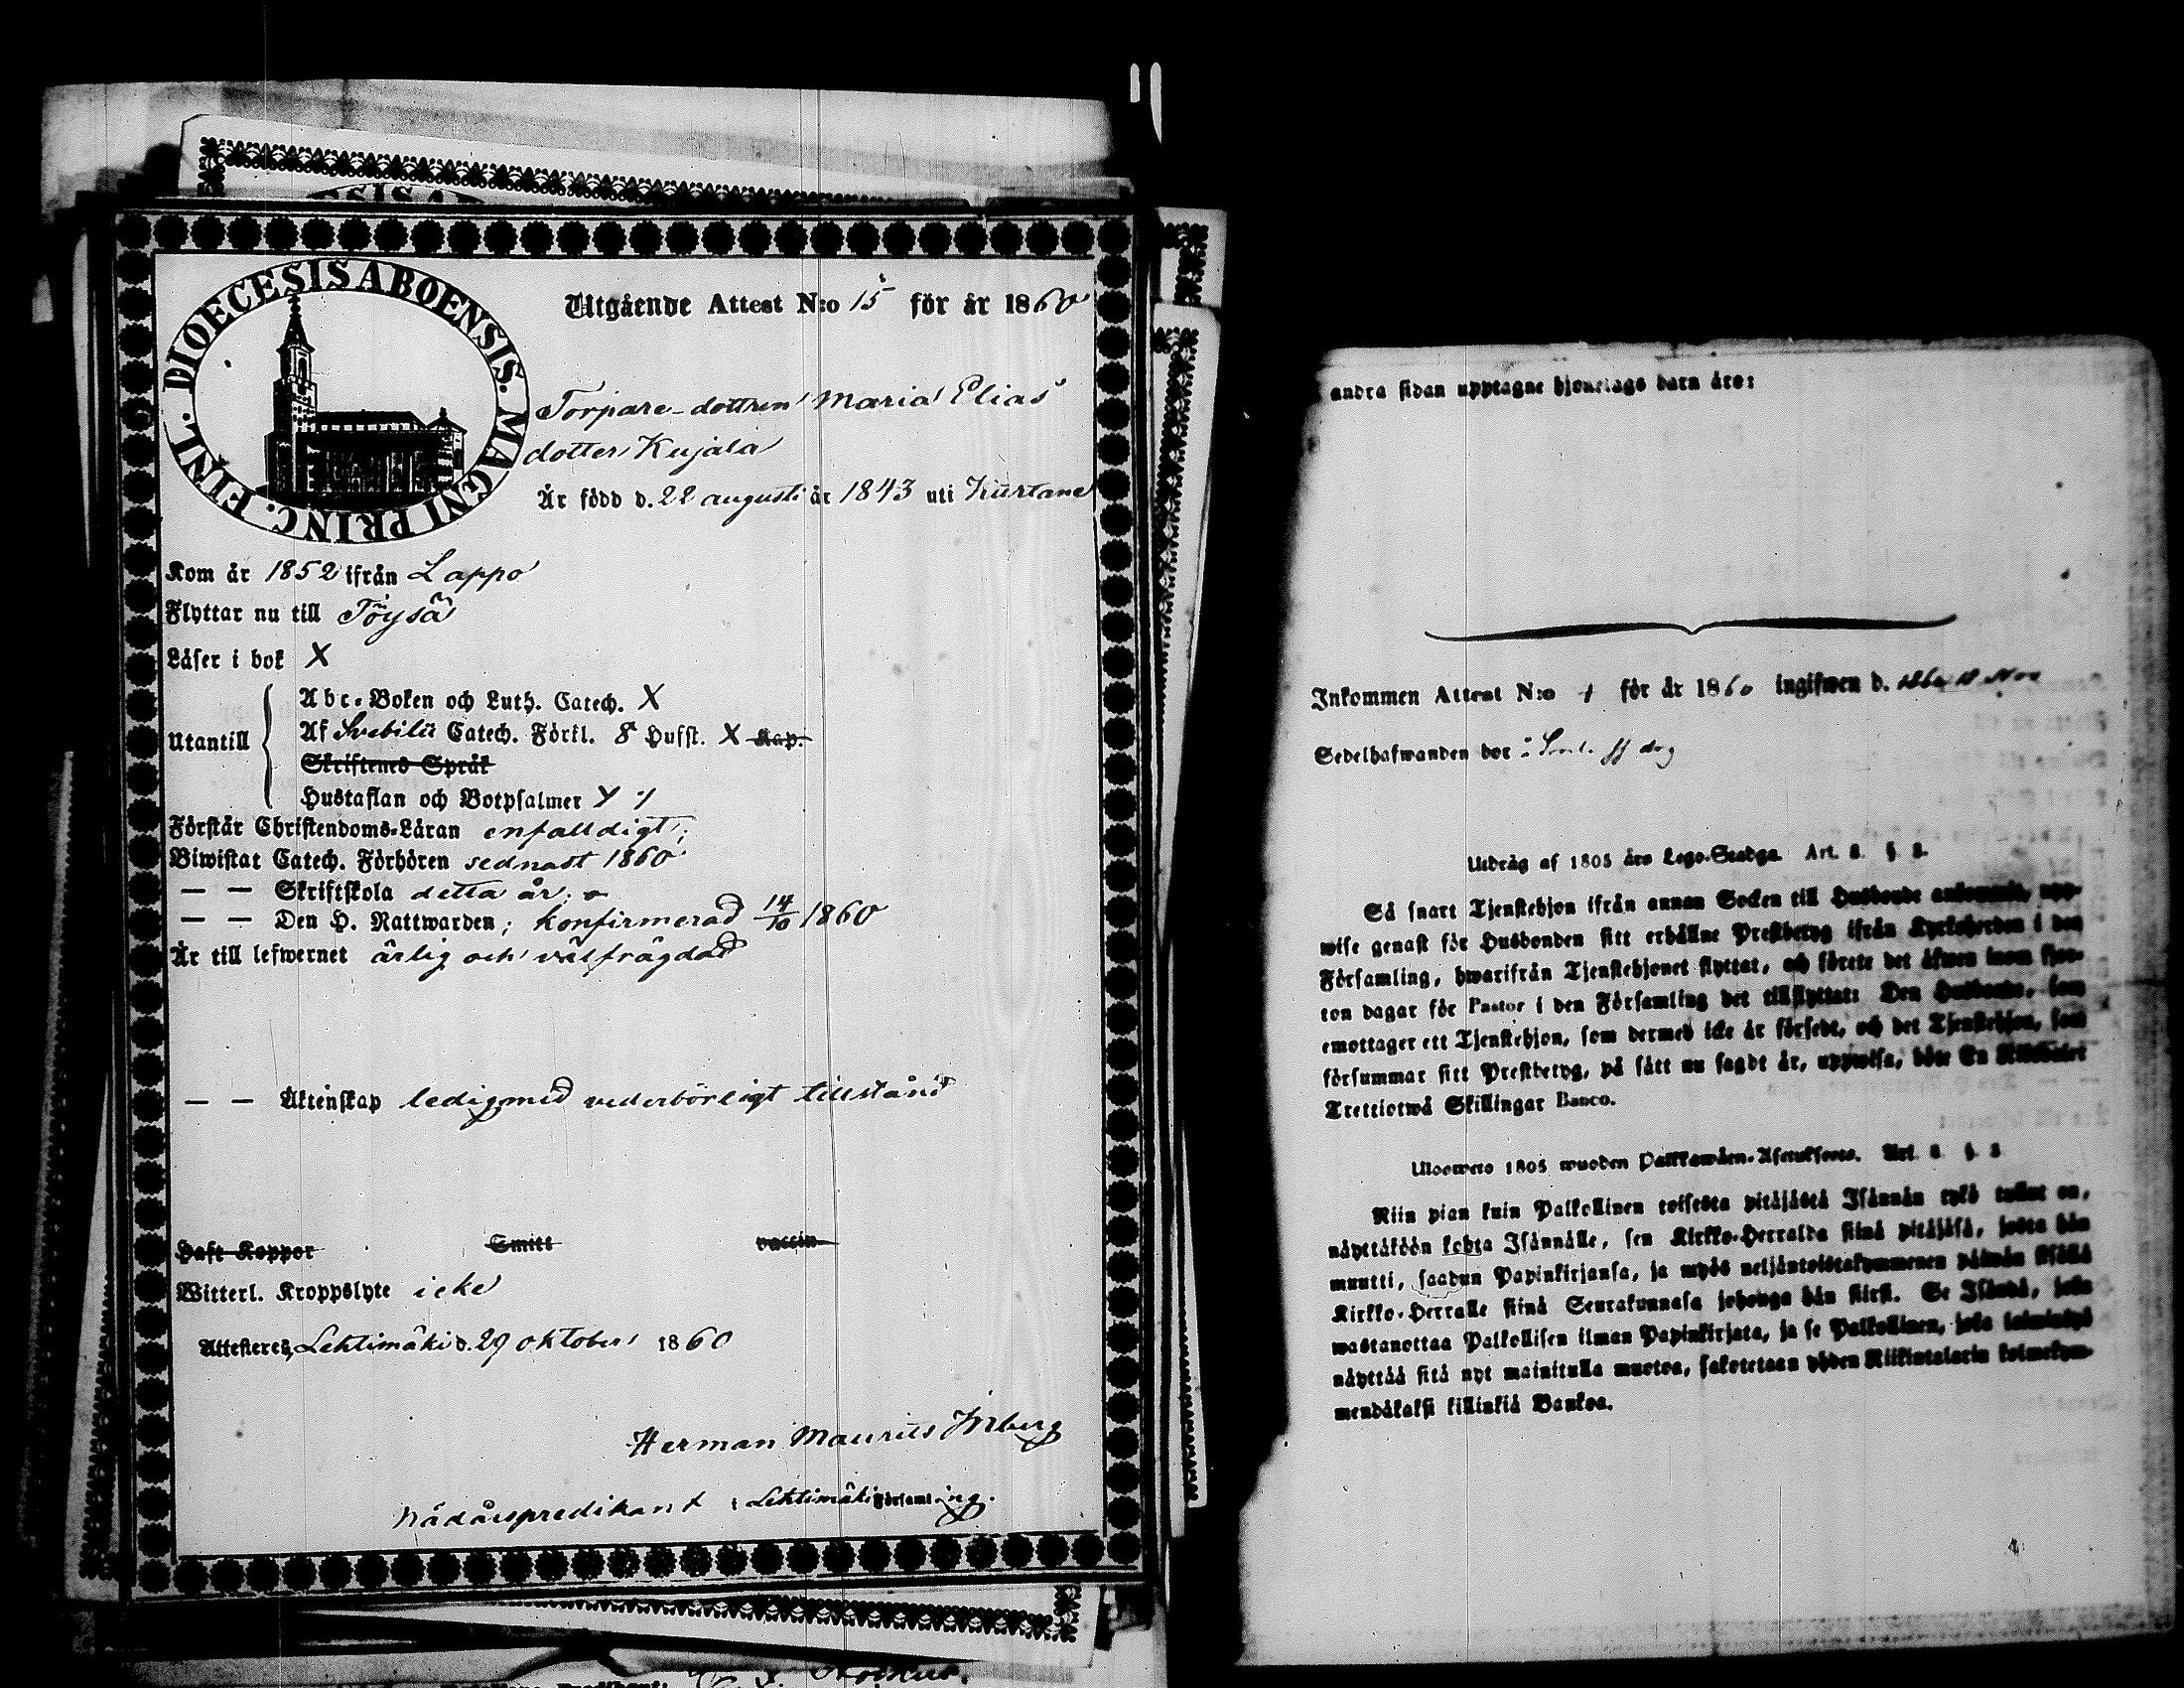 DIOECESIS ABOENSIS. MAGNI PRINC. FINL.
Utgående Attest N:o 15 för år 1860
Torpare-dottren Maria Elias
dotter Kujala
Är född d. 22 augusti år 1843 uti Kuortane
Kom år 1852 ifrån Lappo
Flyttar nu till Töysä
Läser i bok X
Utantill
Abc-Boken och Luth. Catech. X
Af Svebilii Catech. Förkl. 8 Hufst. X Kap.
Skriftenes Språk
Hustaflan och Botpsalmer
Förstår Christendoms-Läran enfalldigt;
Biwistat Catech. Förhören sednast 1860
— — Skriftskola detta år;
— — Den H. Nattwarden; konfirmerad 14/10 1860
Är till lefwernet ärlig och välfrägdad
— — Äktenskap ledig med vederbörligt tillstånd
Haft Koppor Smitt vaccin
Witterl. Kroppslyte icke
Attesteres, Lehtimäki d. 29 oktober 1860
Herman Mauritz Inberg
Nådårspredikant i Lehtimäki Församling.
andra sidan upptagne hjonelags barn äro:
Inkommen Attest N:o 1 för år 1860 ingifwen d. Nov
Sedelhafwanden bor
Utdrag af 1805 års Lego-Stadga. Art. 2. §. 2.
Så snart Tjenstehjon ifrån annan Socken till Husbonde ankommit, upp-
wise genast för Husbonden sitt erhållne Prestbetyg ifrån Kyrkoherden i den
Församling, hwarifrån Tjenstehjonet flyttat, och förete det äfwen inom fjor-
ton dagar för Pastor i den Församling det tillflyttat: Den Husbonde, som
emottager ett Tjenstehjon, som dermed icke är försedt, och det Tjenstehjon, som
försummar sitt Prestbetyg, på sätt nu sagdt är, uppwisa, böte En Riksdaler
Trettiotwå Skillingar Banco.
Uloswето 1805 wuoden Palkkawäen-Asetuksesta. Art. 2. §. 2
Niin pian kuin Palkollinen toisesta pitäjästä Isännän tykö tullut on,
näyttäköön kohta Isännälle, sen Kirkko-Herralda siinä pitäjäsä, josta hän
muutti, saadun Papinkirjansa, ja myös neljäntoistakymmenen päiwän sisällä
Kirkko-Herralle siinä Seurakunnasa johonga hän siirsi. Se Isändä, joka
wastanottaa Palkollisen ilman Papinkirjata, ja se Palkollinen, joka laiminlyö
näyttää sitä nyt mainitulla muotoa, sakotetaan yhden Riikintalarin kolmekym-
mendäkaksi killinkiä Bankoa.